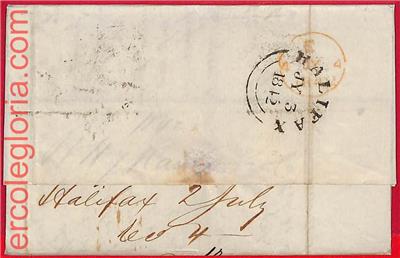 ercolegloria.com
HALIFAX
JY 3
1842
Halifax 2 July